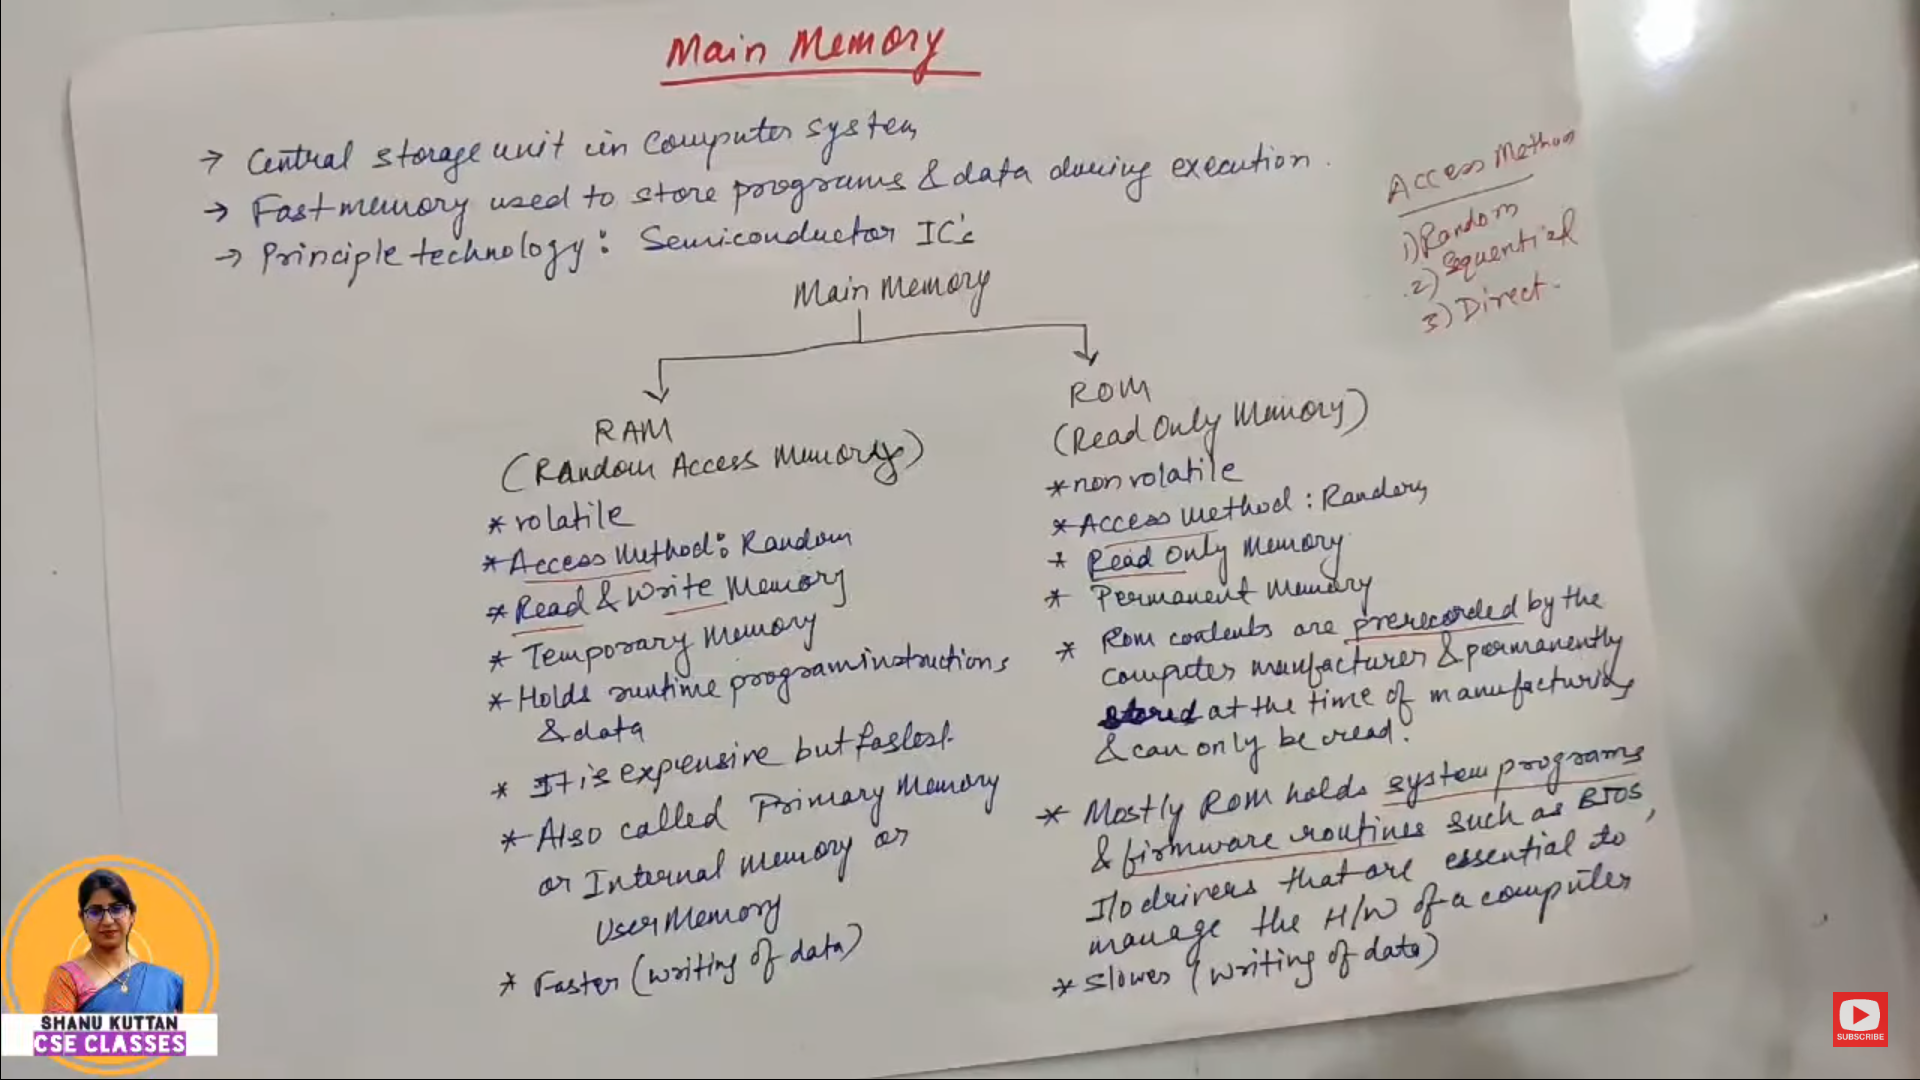 Main Memory
→ Central storage unit in Computer system
→ Fast memory used to store programs & data during execution.
→ Principle technology: Semiconductor IC's
Access Methods
1) Random
2) Sequential
3) Direct.
Main Memory
RAM
(Random Access Memory)
* volatile
* Access Method: Random
* Read & Write Memory
* Temporary Memory
* Holds runtime program instructions
& data
* It is expensive but fastest.
* Also called Primary Memory
or Internal memory or
User Memory
* Faster (writing of data)
ROM
(Read Only Memory)
* non volatile
* Access Method: Random
* Read Only Memory
* Permanent Memory
* Rom contents are prerecorded by the
computer manufacturer & permanently
stored at the time of manufacturing
& can only be read.
* Mostly ROM holds system programs
& firmware routines such as BIOS,
I/O drivers that are essential to
manage the H/W of a computer
* Slower (writing of data)
SHANU KUTTAN
CSE CLASSES
SUBSCRIBE